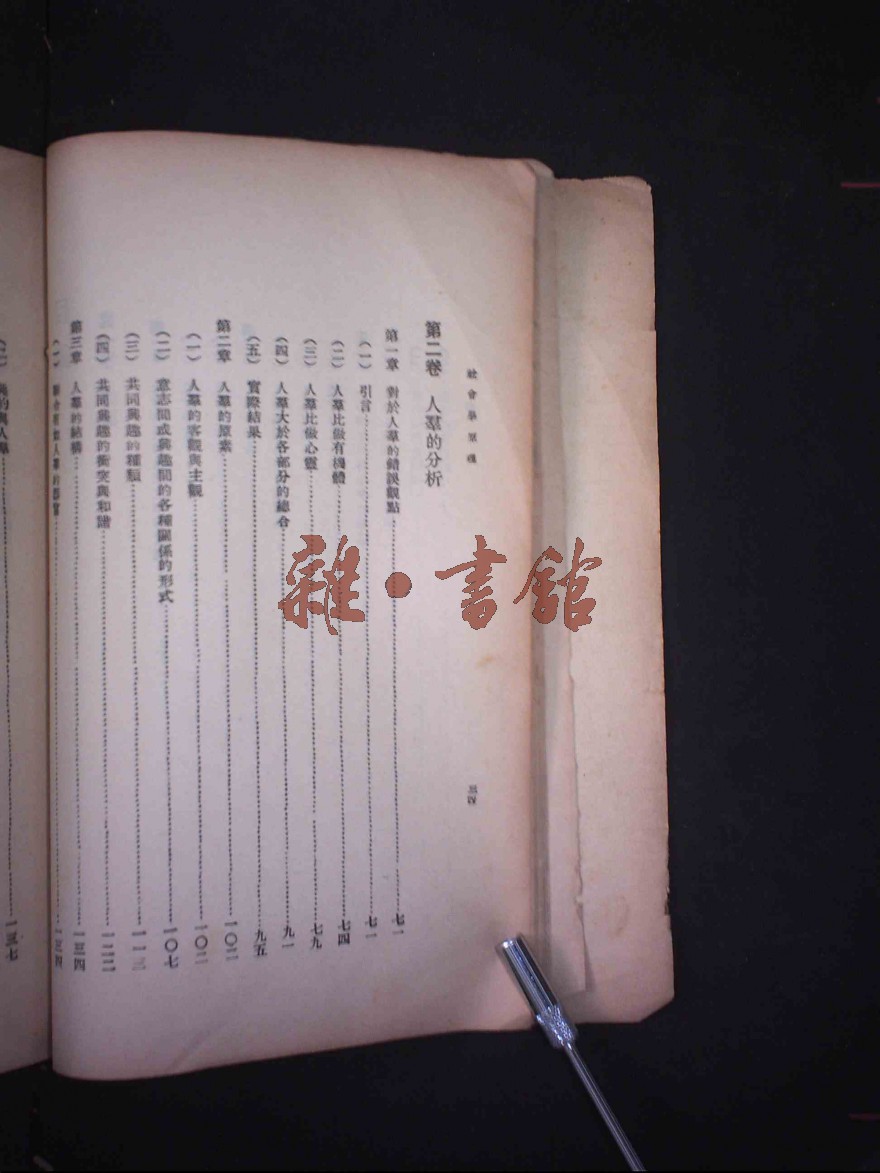 社會學原理
三四
第二卷 人羣的分析
第一章 對於人羣的錯誤觀點 七一
(一) 引言 七一
(二) 人羣比做有機體 七四
(三) 人羣比做心靈 七九
(四) 人羣大於各部分的總合 九一
(五) 實際結果 九五
第二章 人羣的原素 一〇二
(一) 人羣的客觀與主觀 一〇二
(二) 意志間或興趣間的各種關係的形式 一〇七
(三) 共同興趣的種類
(四) 共同興趣的衝突與和諧 一二二
第三章 人羣的結構 一三四
(一) 一三四
的與人羣 一三七
雜·書館